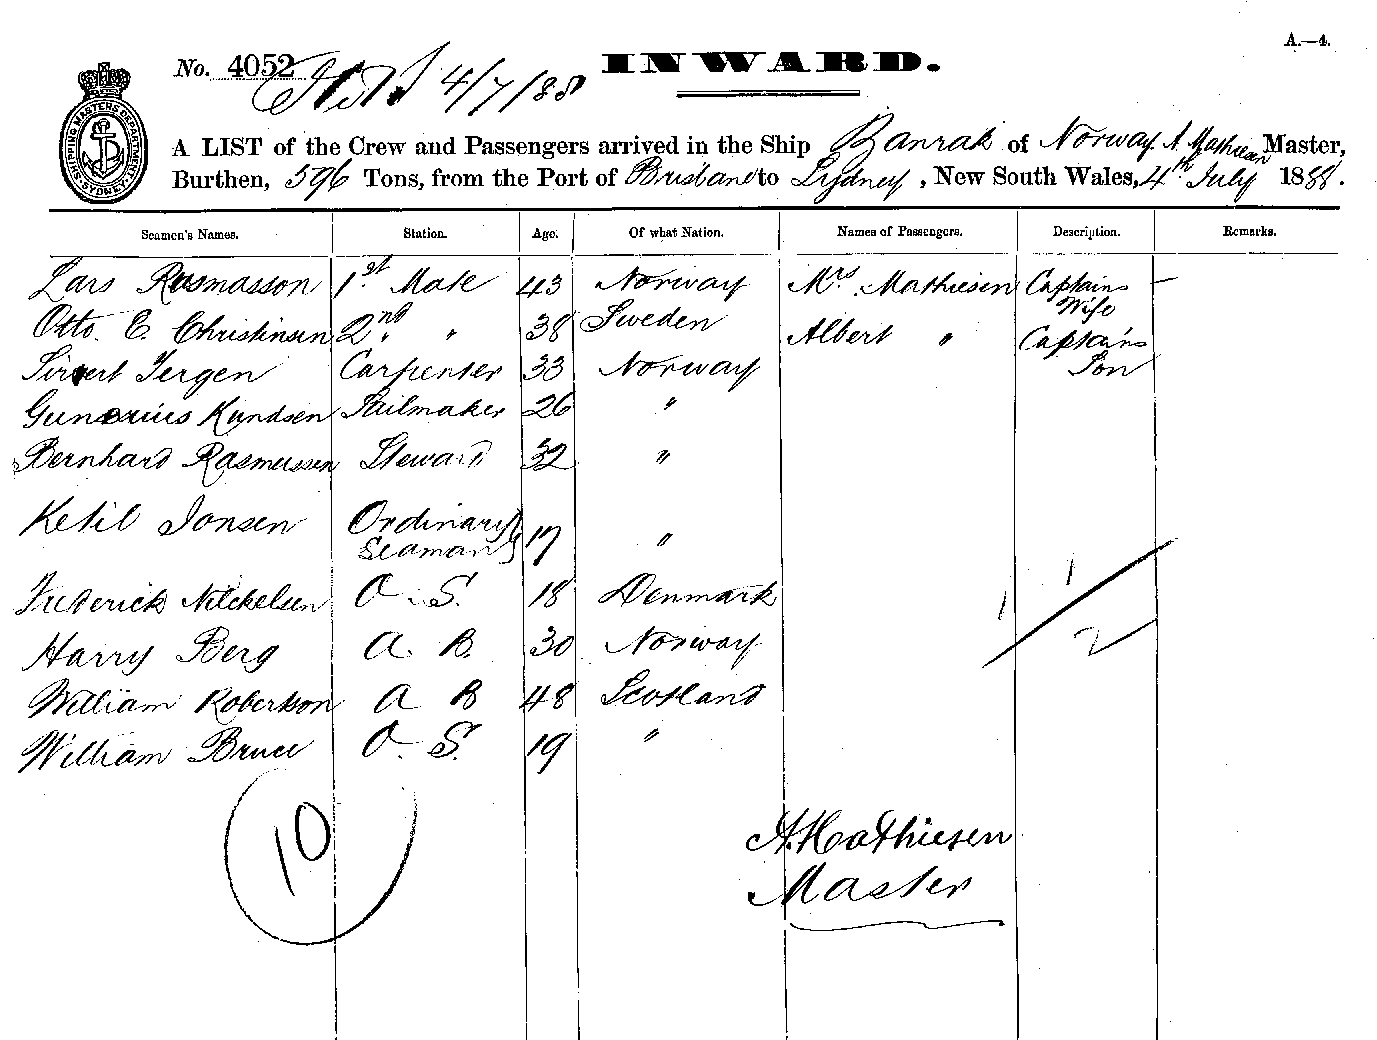 A.—4.
No. 4052 4/7/88 INWARD.
SHIPPING MASTERS DEPARTMENT SYDNEY
A LIST of the Crew and Passengers arrived in the Ship Banrak of Norway A Mathiesen Master,
Burthen, 596 Tons, from the Port of Brisbane to Sydney, New South Wales, 4th July 1888.
Seamen's Names. Station. Age. Of what Nation. Names of Passengers. Description. Remarks.
Lars Rasmasson 1st Mate 43 Norway Mrs. Mathiesen Captains Wife —
Otto. E. Christinsen 2nd " 38 Sweden Albert " Captains Son
Sivert Jergen Carpenter 33 Norway
Gunerius Kundsen Sailmaker 26 "
Bernhard Rasmussen Steward 32 "
Ketil Jonsen Ordinary Seaman 17 "
Frederick Nilckelsen O. S. 18 Denmark
Harry Berg A. B. 30 Norway
William Robertson A B 48 Scotland
William Bruce O. S. 19 "
1 1
2
10
A. Mathiesen
Master